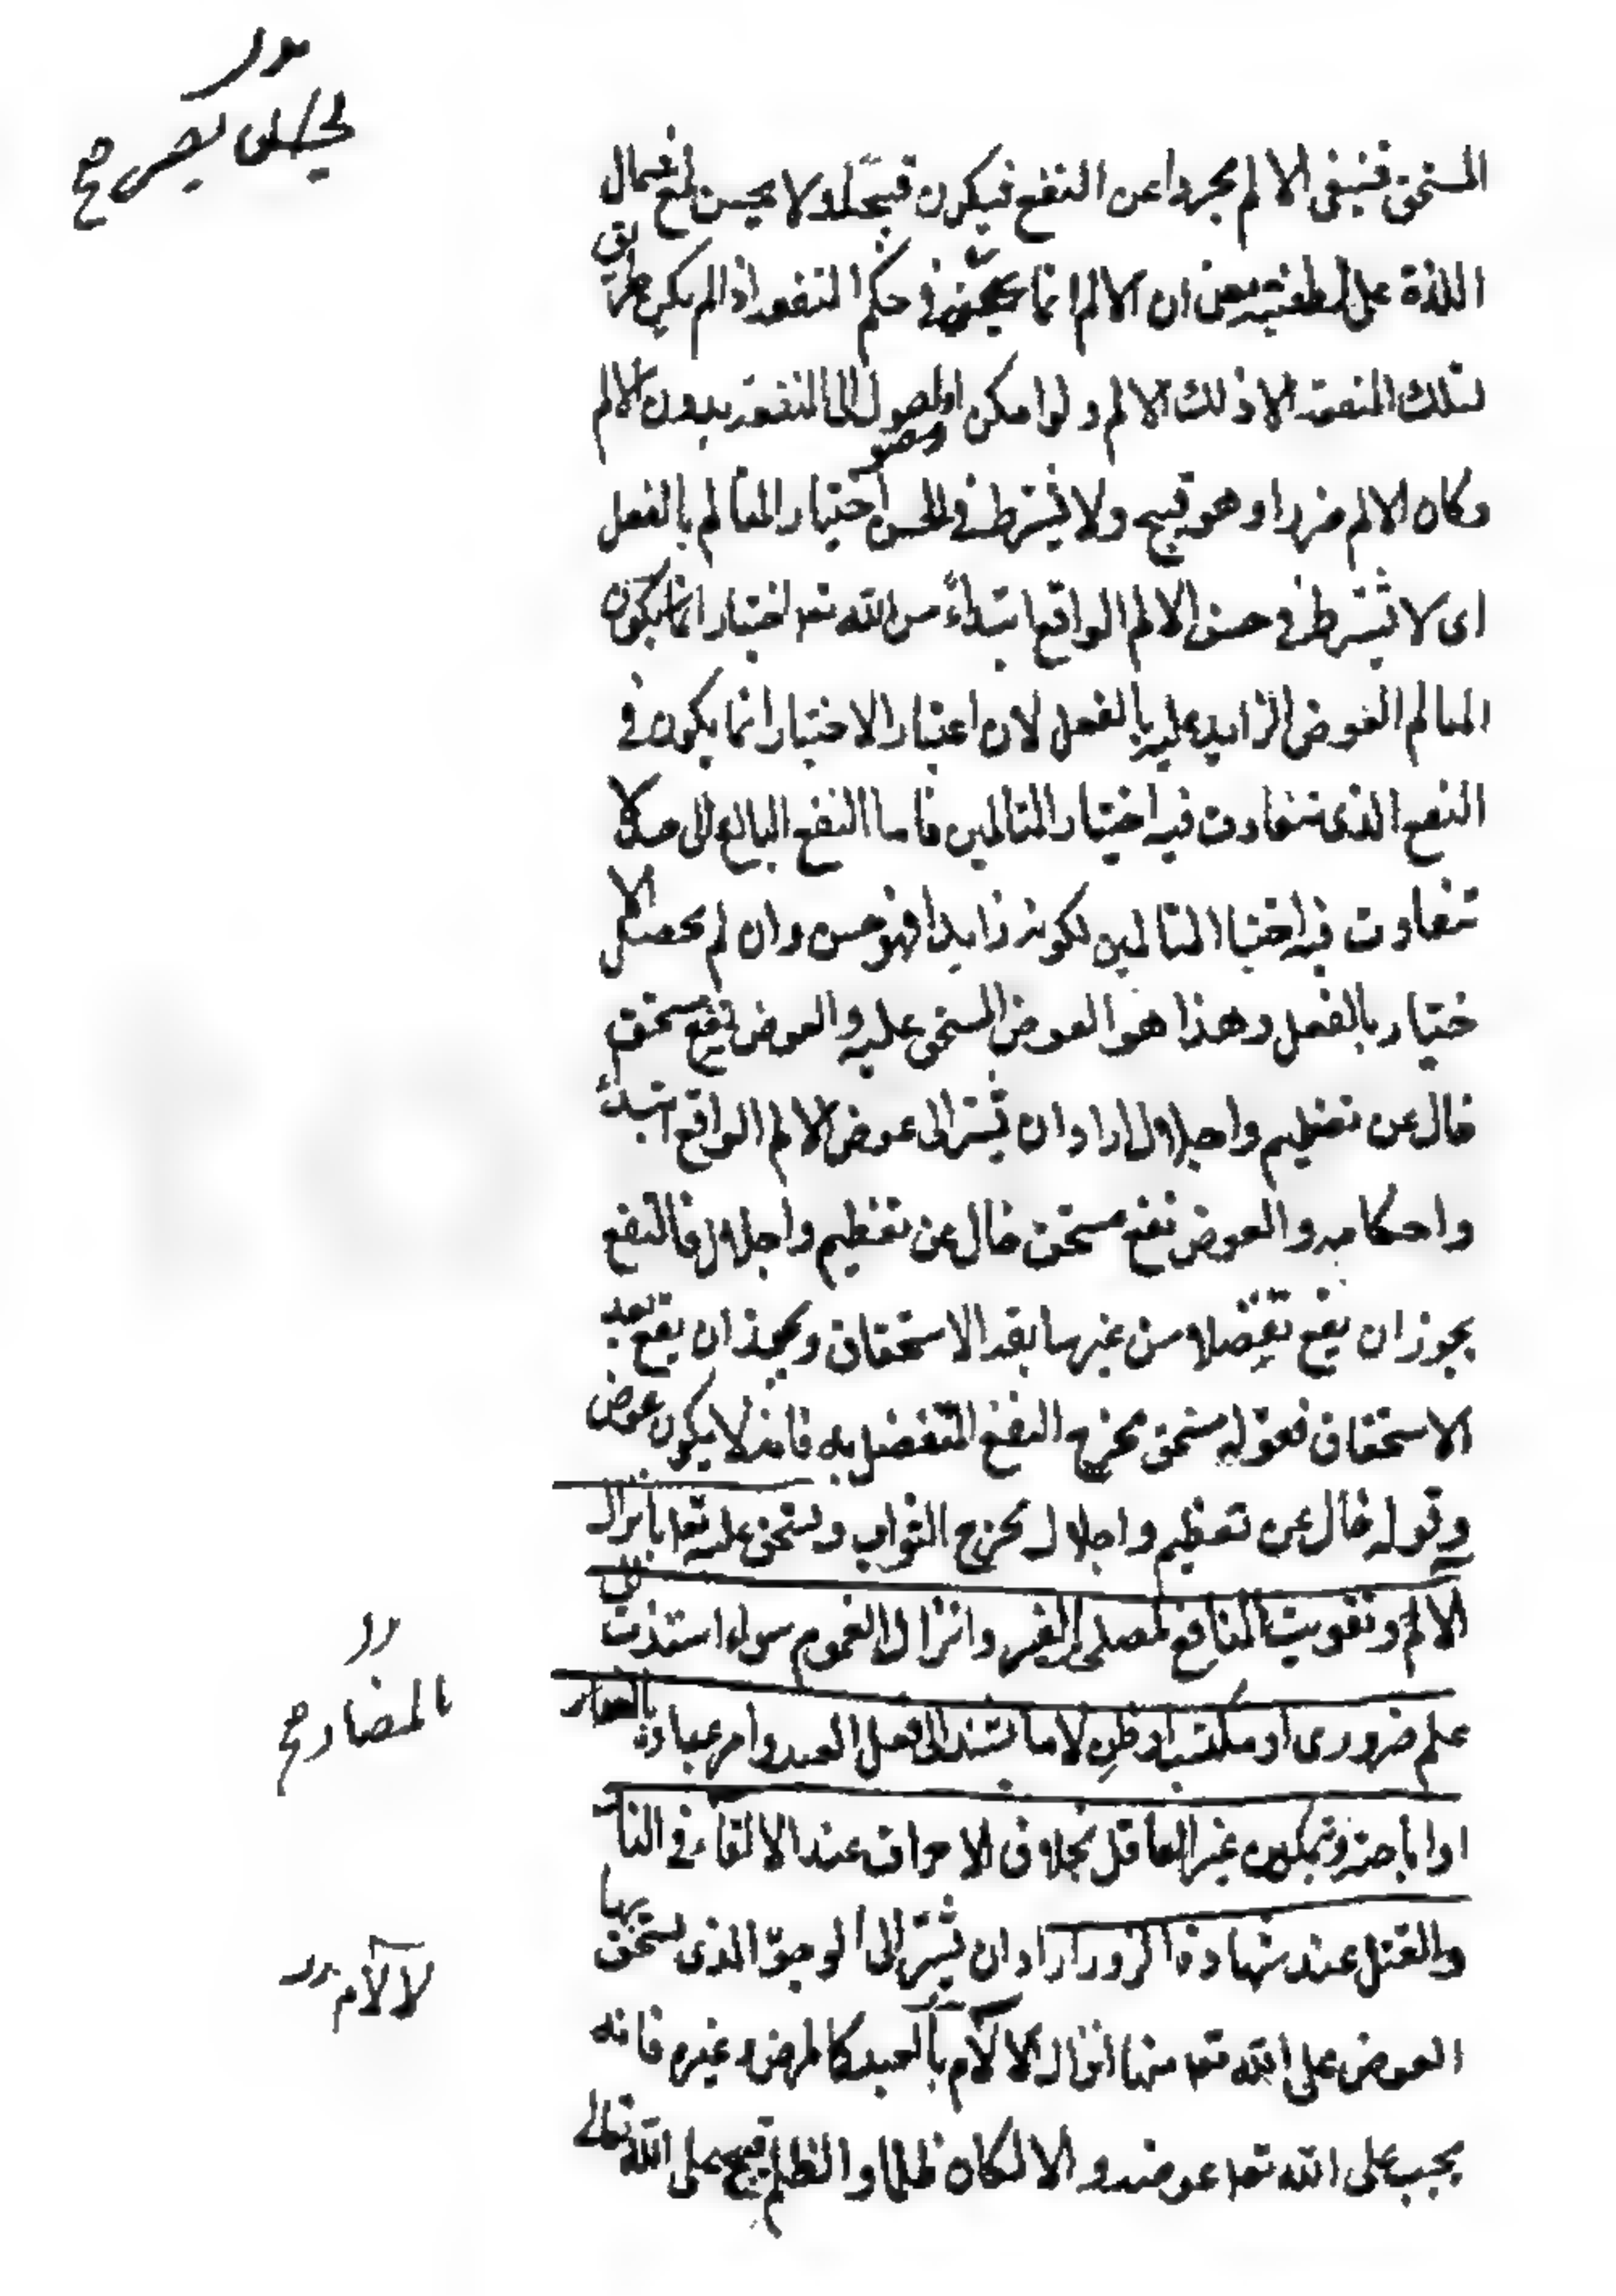 المستحق فينبغى الالم مجردا عن النفع فيكون قبيحا ولا يحسن مع اشتمال
اللذة على لطفيته يعنى ان الالم انما يحسن فى حكم المنفعة اذا لم يكن طريق
لتلك المنفعة الا ذلك الالم ولو امكن الوصول الى المنفعة بدون الالم
وكان الالم ضررا وهو قبيح ولا يشترط فى الحسن اختيار المتألم بالفعل
اى لا يشترط فى حسن الالم الواقع ابتداءً من الله تعـ اختيار انما يكون
المتالم العوض الزايد عليه بالفعل لان اعتبار الاختيار انما يكون فى
النفع الذى تتفاوت فيه اختيار المتالمين فاما النفع البالغ الى حد لا
تتفاوت فيه اختيا المتالمين لكونه زايدا فهو حسن وان لم يحصل الا
ختيار بالفعل وهذا هو العوض المستحق عليه والعوض نفع مستحق
خال عن تعظيم واجلال اراد ان يشير الى عوض الالم الواقع ابتداءً
واحكامه والعوض نفع مستحق خال عن تعظيم واجلال فالنفع
يجوز ان يقع تفضلا من غير سابقه الاستحقاق ويجوز ان يقع بعد
الاستحقاق فقوله مستحق مخرج النفع المتفضل به فانه لا يكون عوض
وقوله خال عن تعظيم واجلال يخرج الثواب ويستحق عليه تعا بانزال
الآلام وتفويت المنافع لمصلحة الغير وانزال الغموم سواء استندت الى
علم ضرورى او مكتسب او ظن لا ما تستند الى فعل العبد وامر عباده بالمضار
او اباحته وتمكين غير العاقل بخلاف الاحراق عند الالقاء فى النار
والقتل عند شهادة الزور اراد ان يشير الى الوجوه الذى يستحق بها
العوض على الله تعـ منها انزال الآلام بالعبد كالمرض وغيره فانه
يجب على الله تعـ عوضه والا لكان ظلما والظلم قبيح على الله تعالى
بالمضار صح
لا لآم